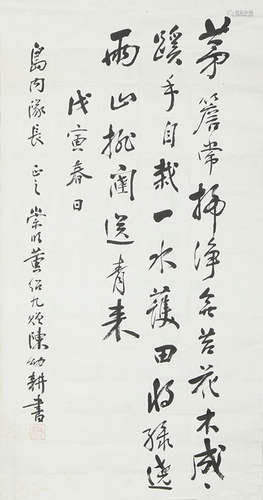 茅簷常掃淨無苔花木成〻
蹊手自栽一水護田將綠遶
兩山排闥送青來
戊寅春日
島內隊長 正之 崇明黃紹九贈陳幼耕書